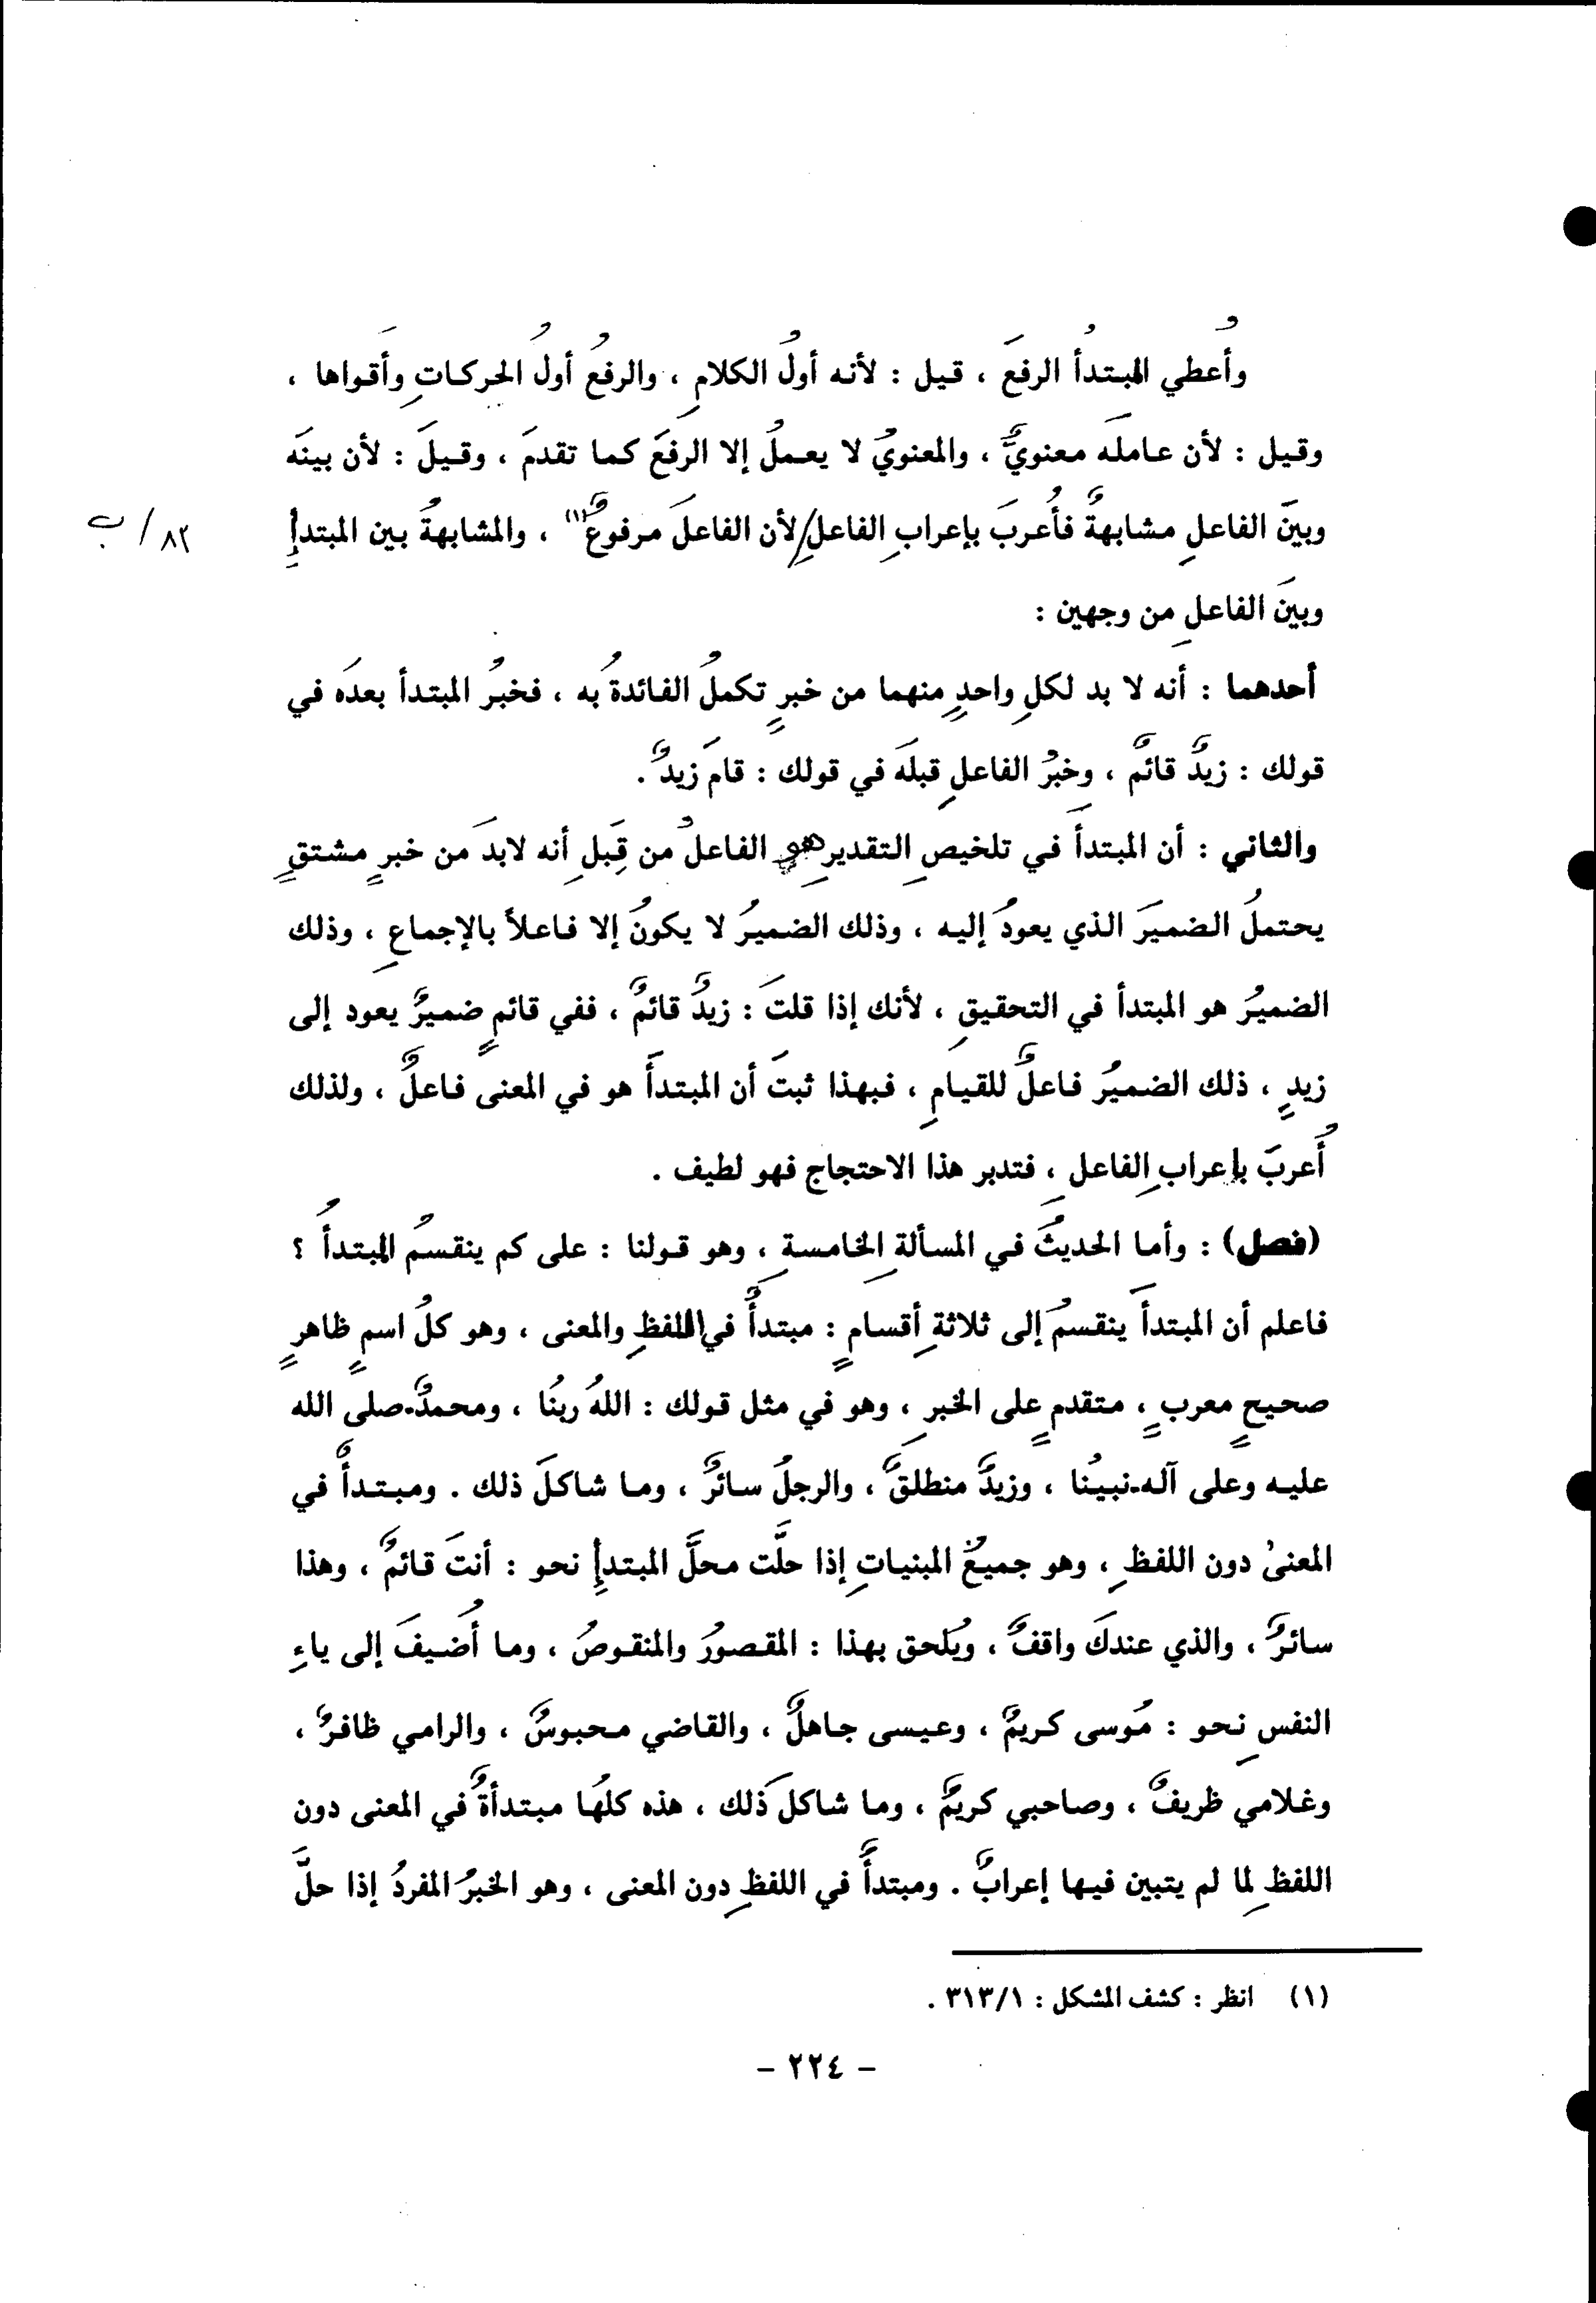 وأُعطي المبتدأُ الرفعَ ، قيل : لأنه أولُ الكلامِ ، والرفعُ أولُ الحركاتِ وأَقواها ،
وقيل : لأن عاملَه معنويٌّ ، والمعنويُ لا يعملُ إلا الرفعَ كما تقدمَ ، وقيلَ : لأن بينَه
وبينَ الفاعلِ مشابهةٌ فأُعربَ بإعرابِ الفاعلِ/لأن الفاعلَ مرفوعٌ(١) ، والمشابهةُ بين المبتدإِ
٨٢/ب
وبينَ الفاعلِ من وجهين :
أحدهما : أنه لا بد لكلِ واحدٍ منهما من خبرٍ تكملُ الفائدةُ به ، فخبرُ المبتدأ بعدَه في
قولك : زيدٌ قائمٌ ، وخبرُ الفاعلِ قبلَه في قولك : قامَ زيدٌ .
والثاني : أن المبتدأَ في تلخيصِ التقديرِ هو الفاعلُ من قِبلِ أنه لابدَ من خبرٍ مشتقٍ
يحتملُ الضميرَ الذي يعودُ إليه ، وذلك الضميرُ لا يكونُ إلا فاعلاً بالإجماعِ ، وذلك
الضميرُ هو المبتدأ في التحقيقِ ، لأنك إذا قلتَ : زيدٌ قائمٌ ، ففي قائمٍ ضميرٌ يعود إلى
زيدٍ ، ذلك الضميرُ فاعلٌ للقيامِ ، فبهذا ثبتَ أن المبتدأَ هو في المعنى فاعلٌ ، ولذلك
أُعربَ بإعرابِ الفاعلِ ، فتدبر هذا الاحتجاج فهو لطيف .
(فصل) : وأما الحديثُ في المسألةِ الخامسةِ ، وهو قولنا : على كم ينقسمُ المبتدأُ ؟
فاعلم أن المبتدأَ ينقسمُ إلى ثلاثةِ أقسامٍ : مبتدأٌ في اللفظِ والمعنى ، وهو كلُ اسمٍ ظاهرٍ
صحيحٍ معربٍ ، متقدمٍ على الخبرِ ، وهو في مثل قولك : اللهُ ربنُا ، ومحمدٌ-صلى الله
عليه وعلى آله-نبيُنا ، وزيدٌ منطلقٌ ، والرجلُ سائرٌ ، وما شاكلَ ذلك . ومبتدأٌ في
المعنىُ دون اللفظِ ، وهو جميعُ المبنياتِ إذا حلَّت محلَّ المبتدإِ نحو : أنتَ قائمٌ ، وهذا
سائرٌ ، والذي عندكَ واقفٌ ، ويُلحق بهذا : المقصورُ والمنقوصُ ، وما أُضيفَ إلى ياءِ
النفسِ نحو : مُوسى كريمٌ ، وعيسى جاهلٌ ، والقاضي محبوسٌ ، والرامي ظافرٌ ،
وغلامي ظريفٌ ، وصاحبي كريمٌ ، وما شاكلَ ذلك ، هذه كلهُا مبتدأةٌ في المعنى دون
اللفظِ لما لم يتبين فيها إعرابٌ . ومبتدأٌ في اللفظِ دون المعنى ، وهو الخبرُ المفردُ إذا حلَّ
(١) انظر : كشف المشكل : ٣١٣/١ .
- ٢٢٤ -